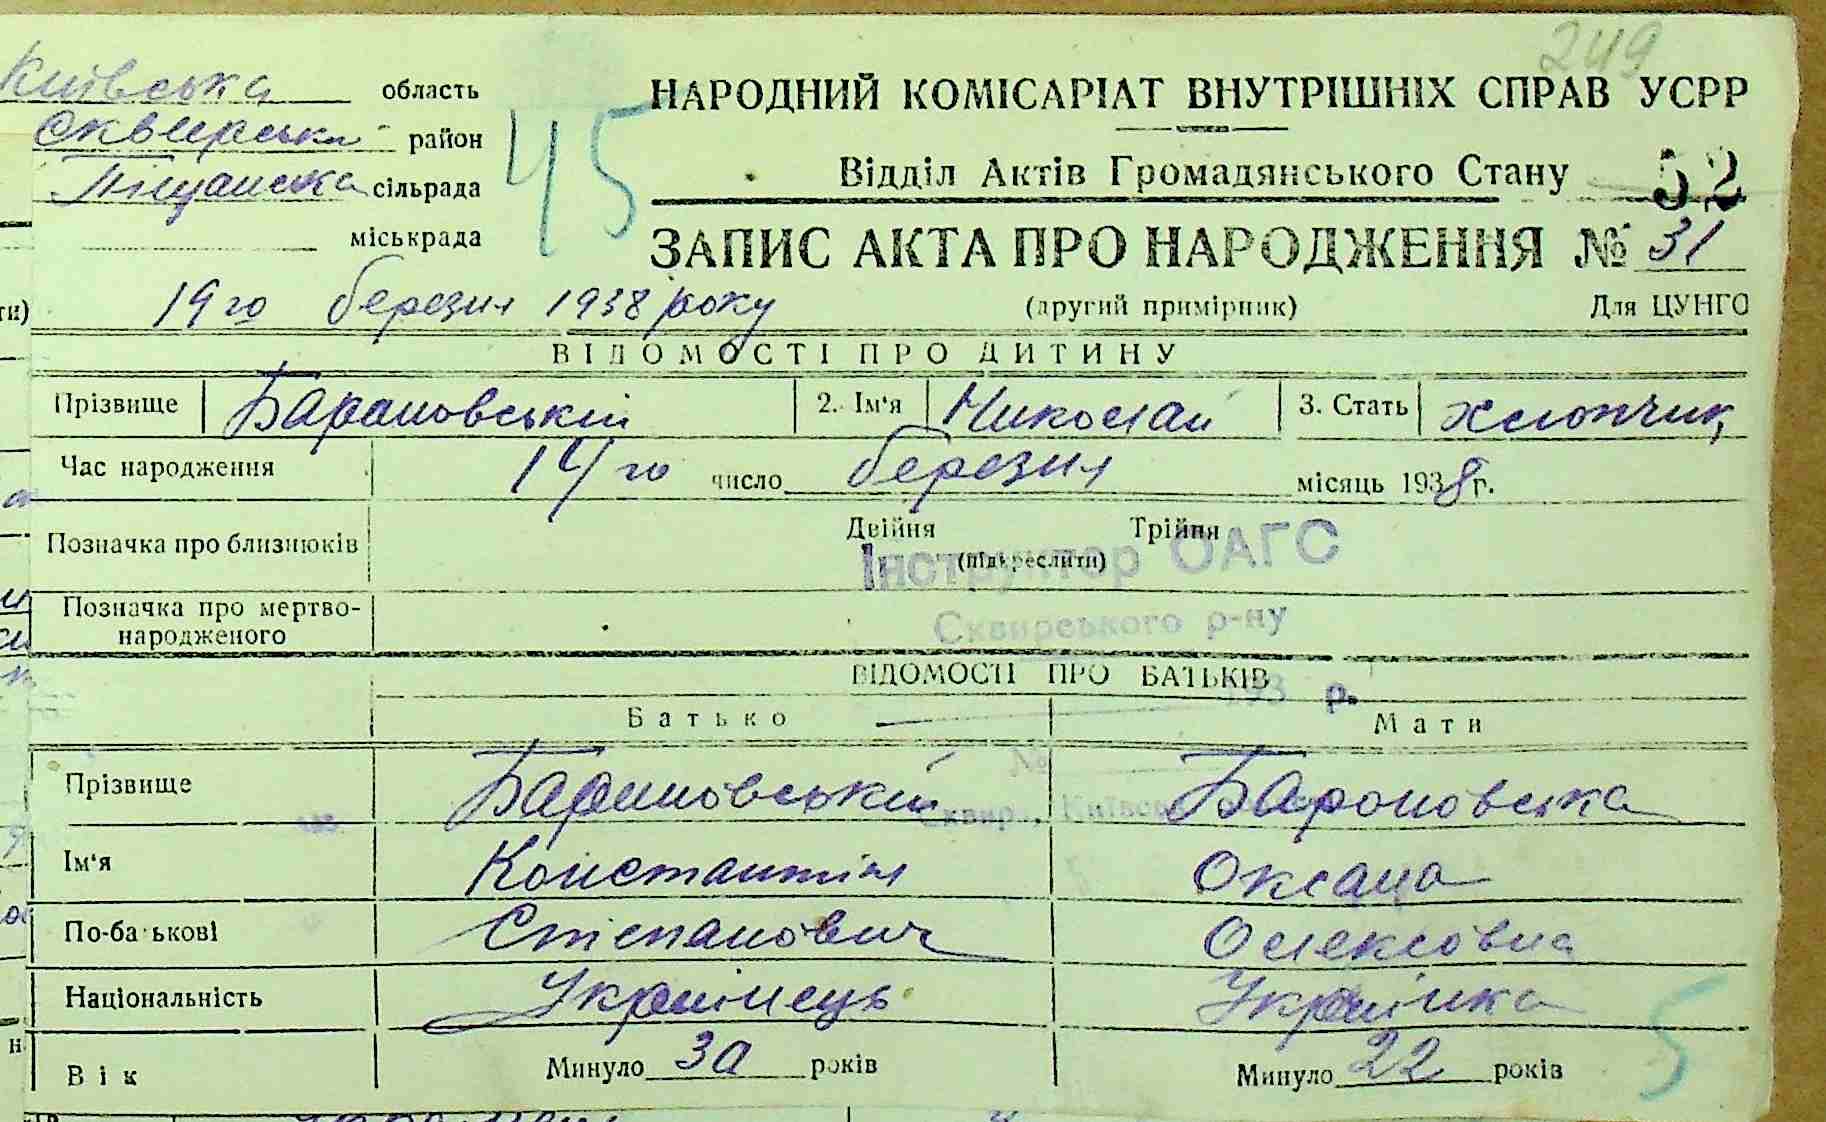 249
Київська область
НАРОДНИЙ КОМІСАРІАТ ВНУТРІШНІХ СПРАВ УСРР
Сквирськи район
45
Відділ Актів Громадянського Стану 52
Піщанска сільрада
міськрада
ЗАПИС АКТА ПРО НАРОДЖЕННЯ № 31
ти) 19го березня 1938 року (другий примірник) Для ЦУНГО
ВІДОМОСТІ ПРО ДИТИНУ
Прізвище Барановський 2. Ім'я Николай 3. Стать хлопчик
Час народження 14го число березня місяць 1938 г.
Позначка про близнюків Двійня Трійня
(підкреслити)
Інструктор ОАГС
Позначка про мертво-
народженого
Сквирського р-ну
ВІДОМОСТІ ПРО БАТЬКІВ
193 р.
Батько Мати
№
Прізвище Барановський Бароновська
Сквир, Київськ
Ім'я Константін Оксана
По-батькові Степанович Олексовна
Національність Українець Українка
5
Вік Минуло 30 років Минуло 22 років